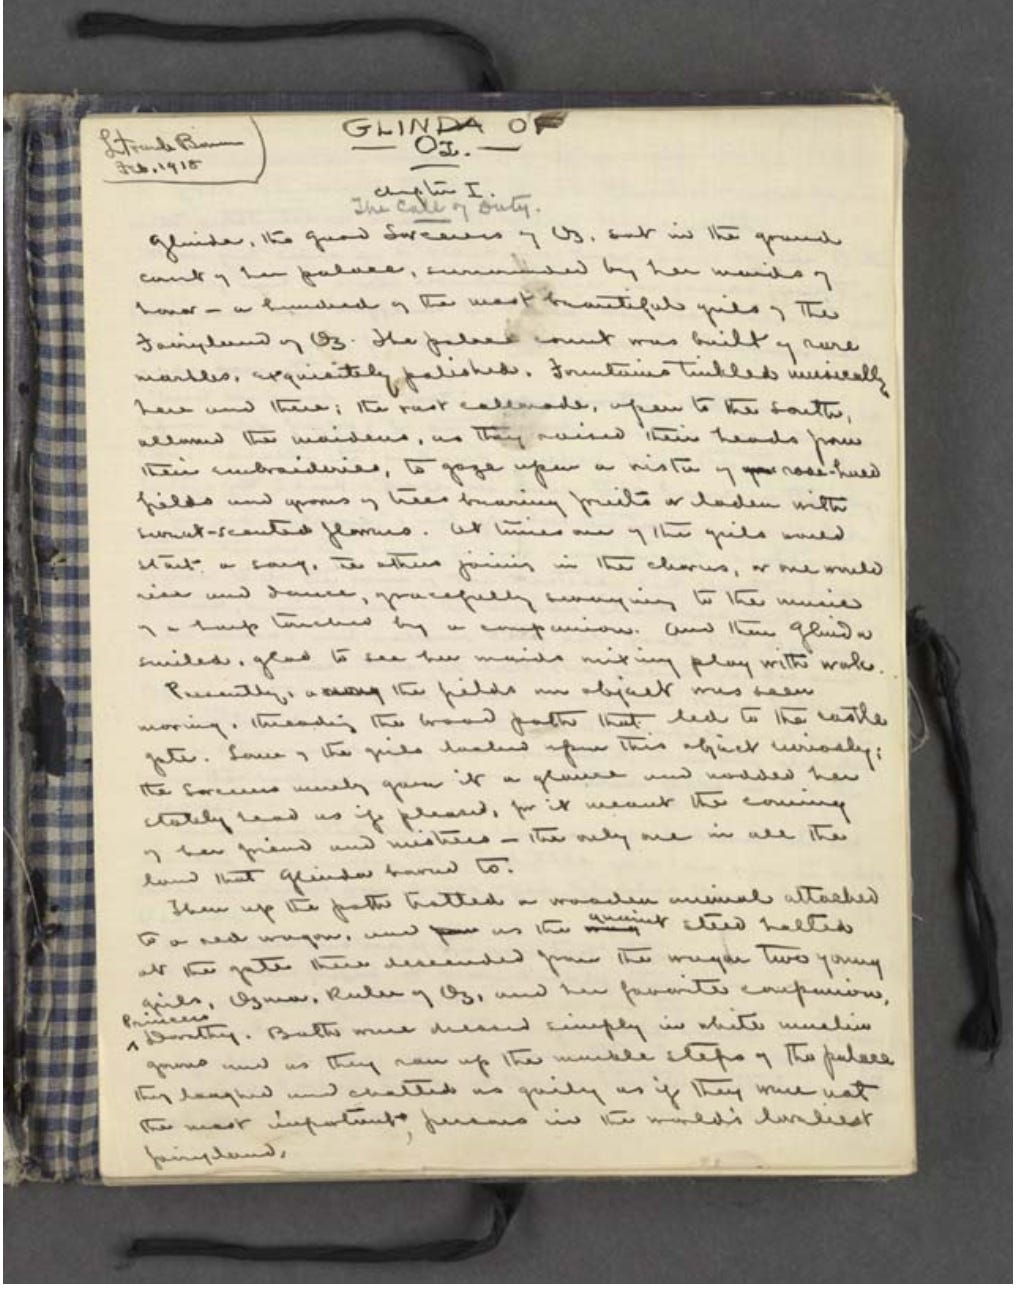 L. Frank Baum
Feb. 1918
GLINDA OF
OZ.
Chapter I.
The Call of Duty.
Glinda, the good Sorceress of Oz, sat in the grand
court of her palace, surrounded by her maids of
honor — a hundred of the most beautiful girls of the
Fairyland of Oz. The palace court was built of rare
marbles, exquisitely polished. Fountains tinkled musically
here and there; the vast colonnade, open to the South,
allowed the maidens, as they raised their heads from
their embroideries, to gaze upon a vista of rose-hued
fields and groves of trees bearing fruits or laden with
sweet-scented flowers. At times one of the girls would
start a song, the others joining in the chorus, or one would
rise and dance, gracefully swaying to the music
of a harp touched by a companion. And then Glinda
smiled, glad to see her maids mixing play with work.
Presently, among the fields an object was seen
moving, threading the broad path that led to the castle
gate. Some of the girls looked upon this object curiously;
the Sorceress merely gave it a glance and nodded her
stately head as if pleased, for it meant the coming
of her friend and mistress — the only one in all the
land that Glinda bowed to.
Then up the path trotted a wooden animal attached
to a red wagon, and as the quaint steed halted
at the gate there descended from the wagon two young
girls, Ozma, Ruler of Oz, and her favorite companion,
Princess
Dorothy. Both were dressed simply in white muslin
gowns and as they ran up the marble steps of the palace
they laughed and chatted as gaily as if they were not
the most important persons in the world's loveliest
fairyland.